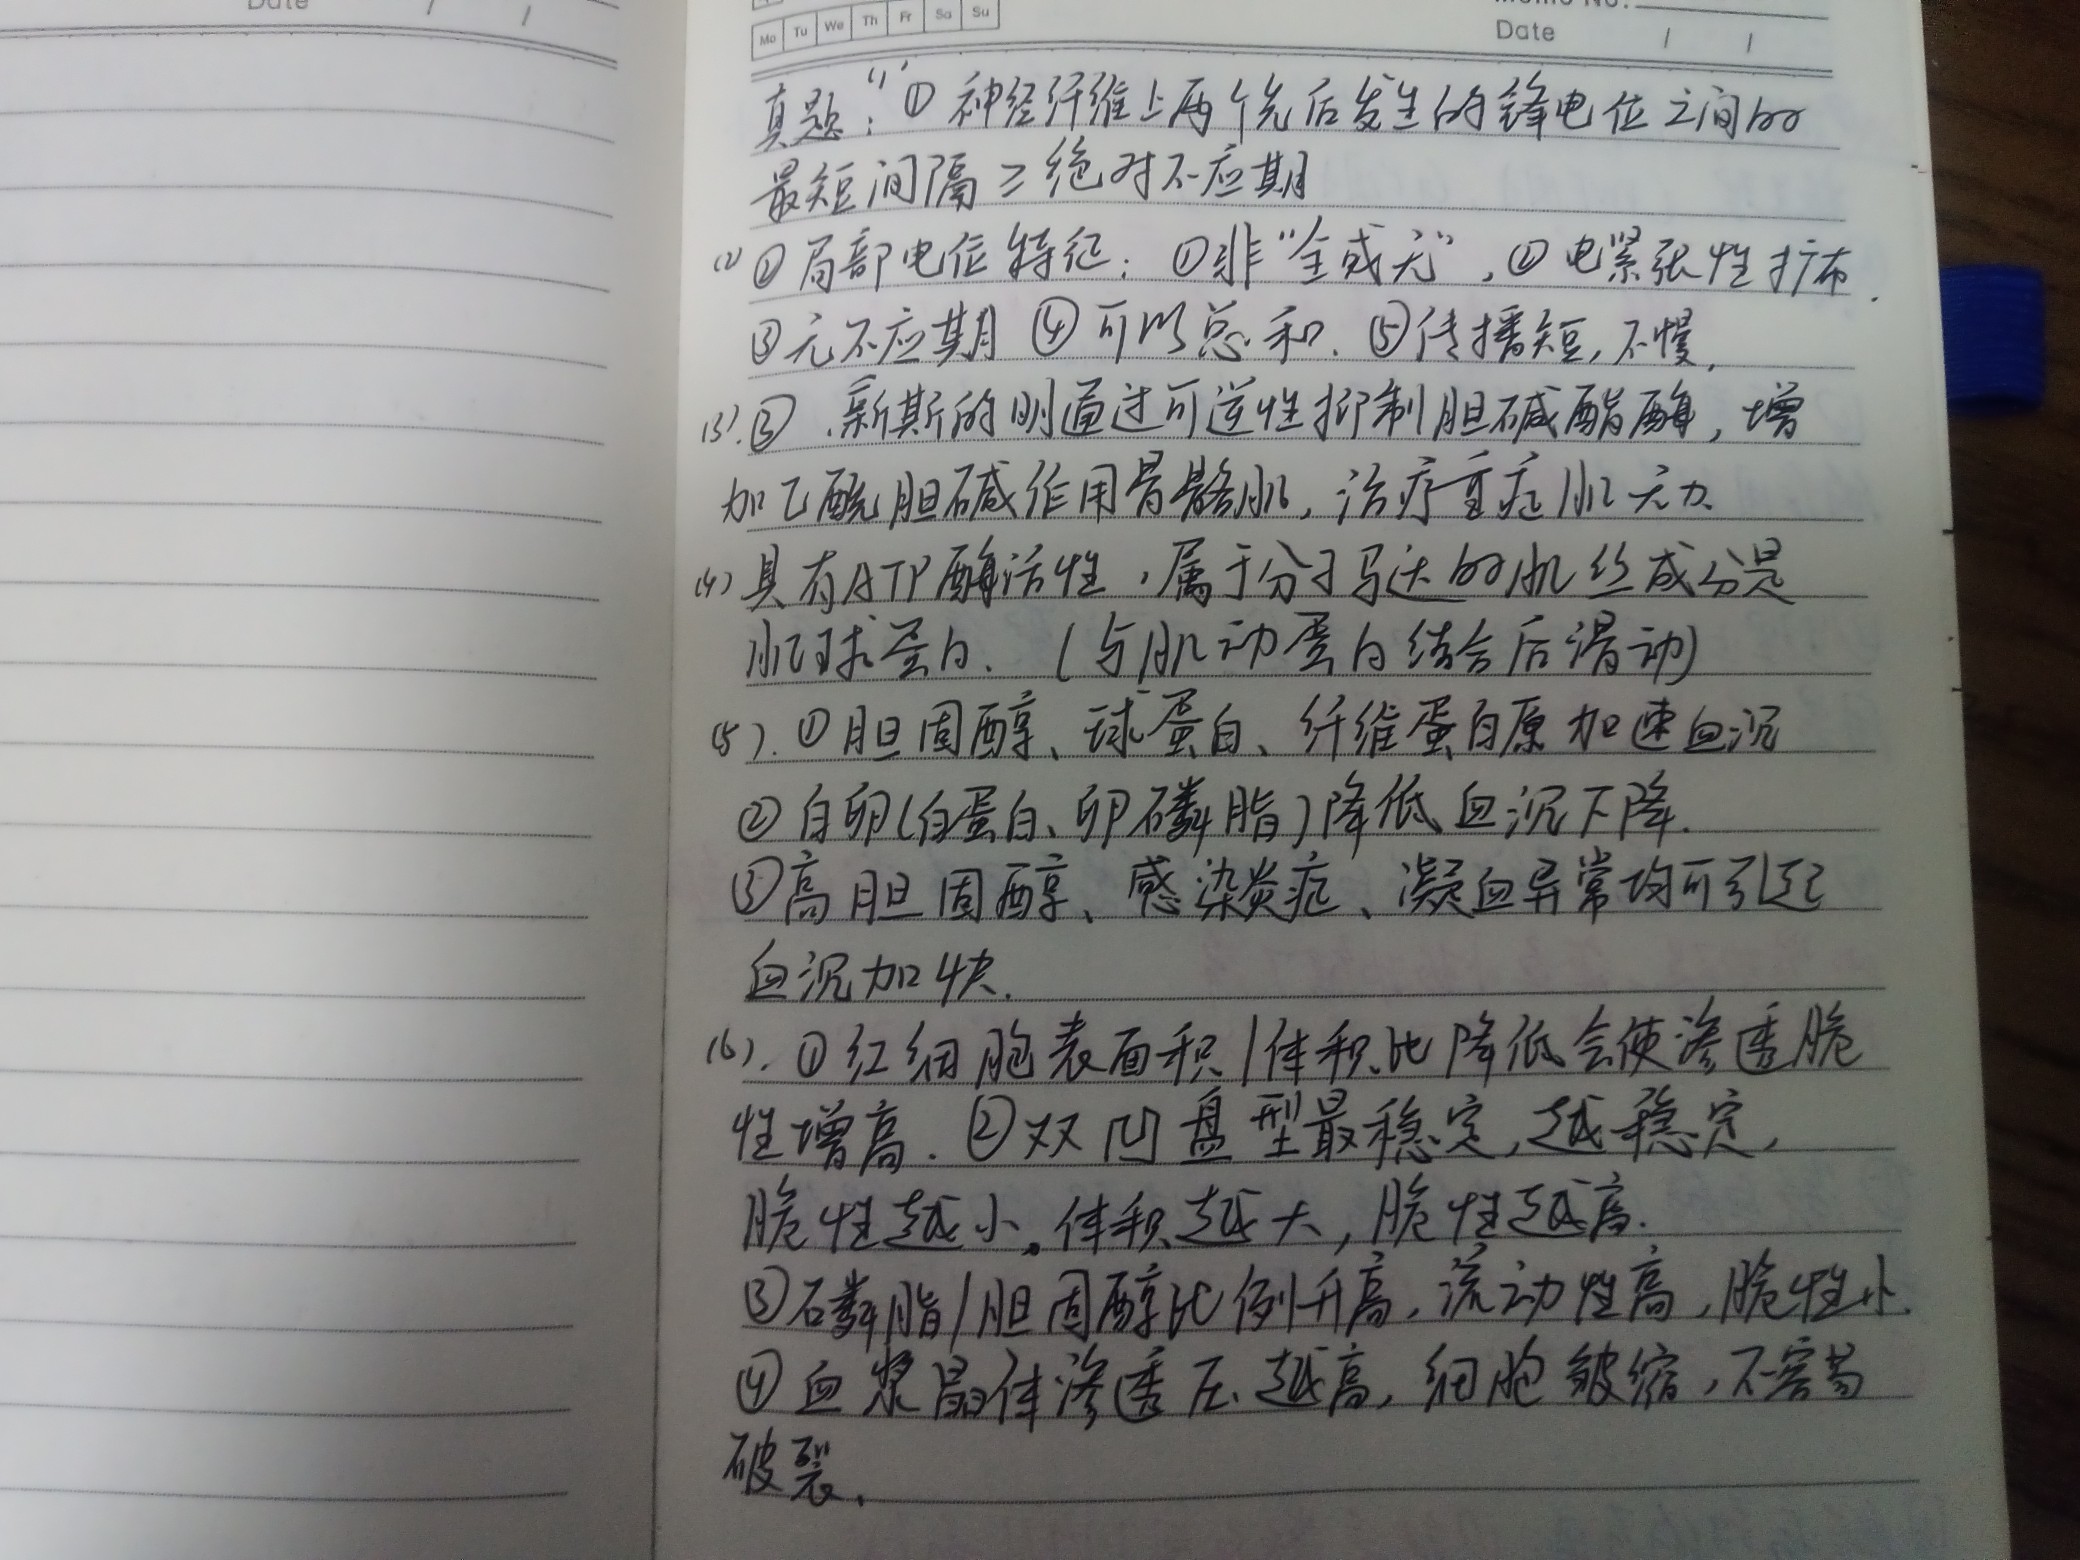 Date / /
Mo Tu We Th Fr Sa Su
Memo No.
Date / /
真题：(1) ① 神经纤维上两个先后发生的锋电位之间的
最短间隔≥绝对不应期
(2) ② 局部电位特征：①非“全或无”，② 电紧张性扩布.
③无不应期 ④可以总和. ⑤传播短，不慢.
(3).③ .新斯的明通过可逆性抑制胆碱酯酶，增
加乙酰胆碱作用骨骼肌，治疗重症肌无力
(4) 具有ATP酶活性，属于分子马达的肌丝成分是
肌球蛋白. (与肌动蛋白结合后滑动)
(5). ①胆固醇、球蛋白、纤维蛋白原加速血沉
② 白卵(白蛋白、卵磷脂)降低血沉下降.
③高胆固醇、感染炎症、凝血异常均可引起
血沉加快.
(6). ①红细胞表面积/体积比降低会使渗透脆
性增高. ②双凹盘型最稳定，越稳定，
脆性越小。体积越大，脆性越高.
③磷脂/胆固醇比例升高，流动性高，脆性小.
④ 血浆晶体渗透压越高，细胞皱缩，不容易
破裂.